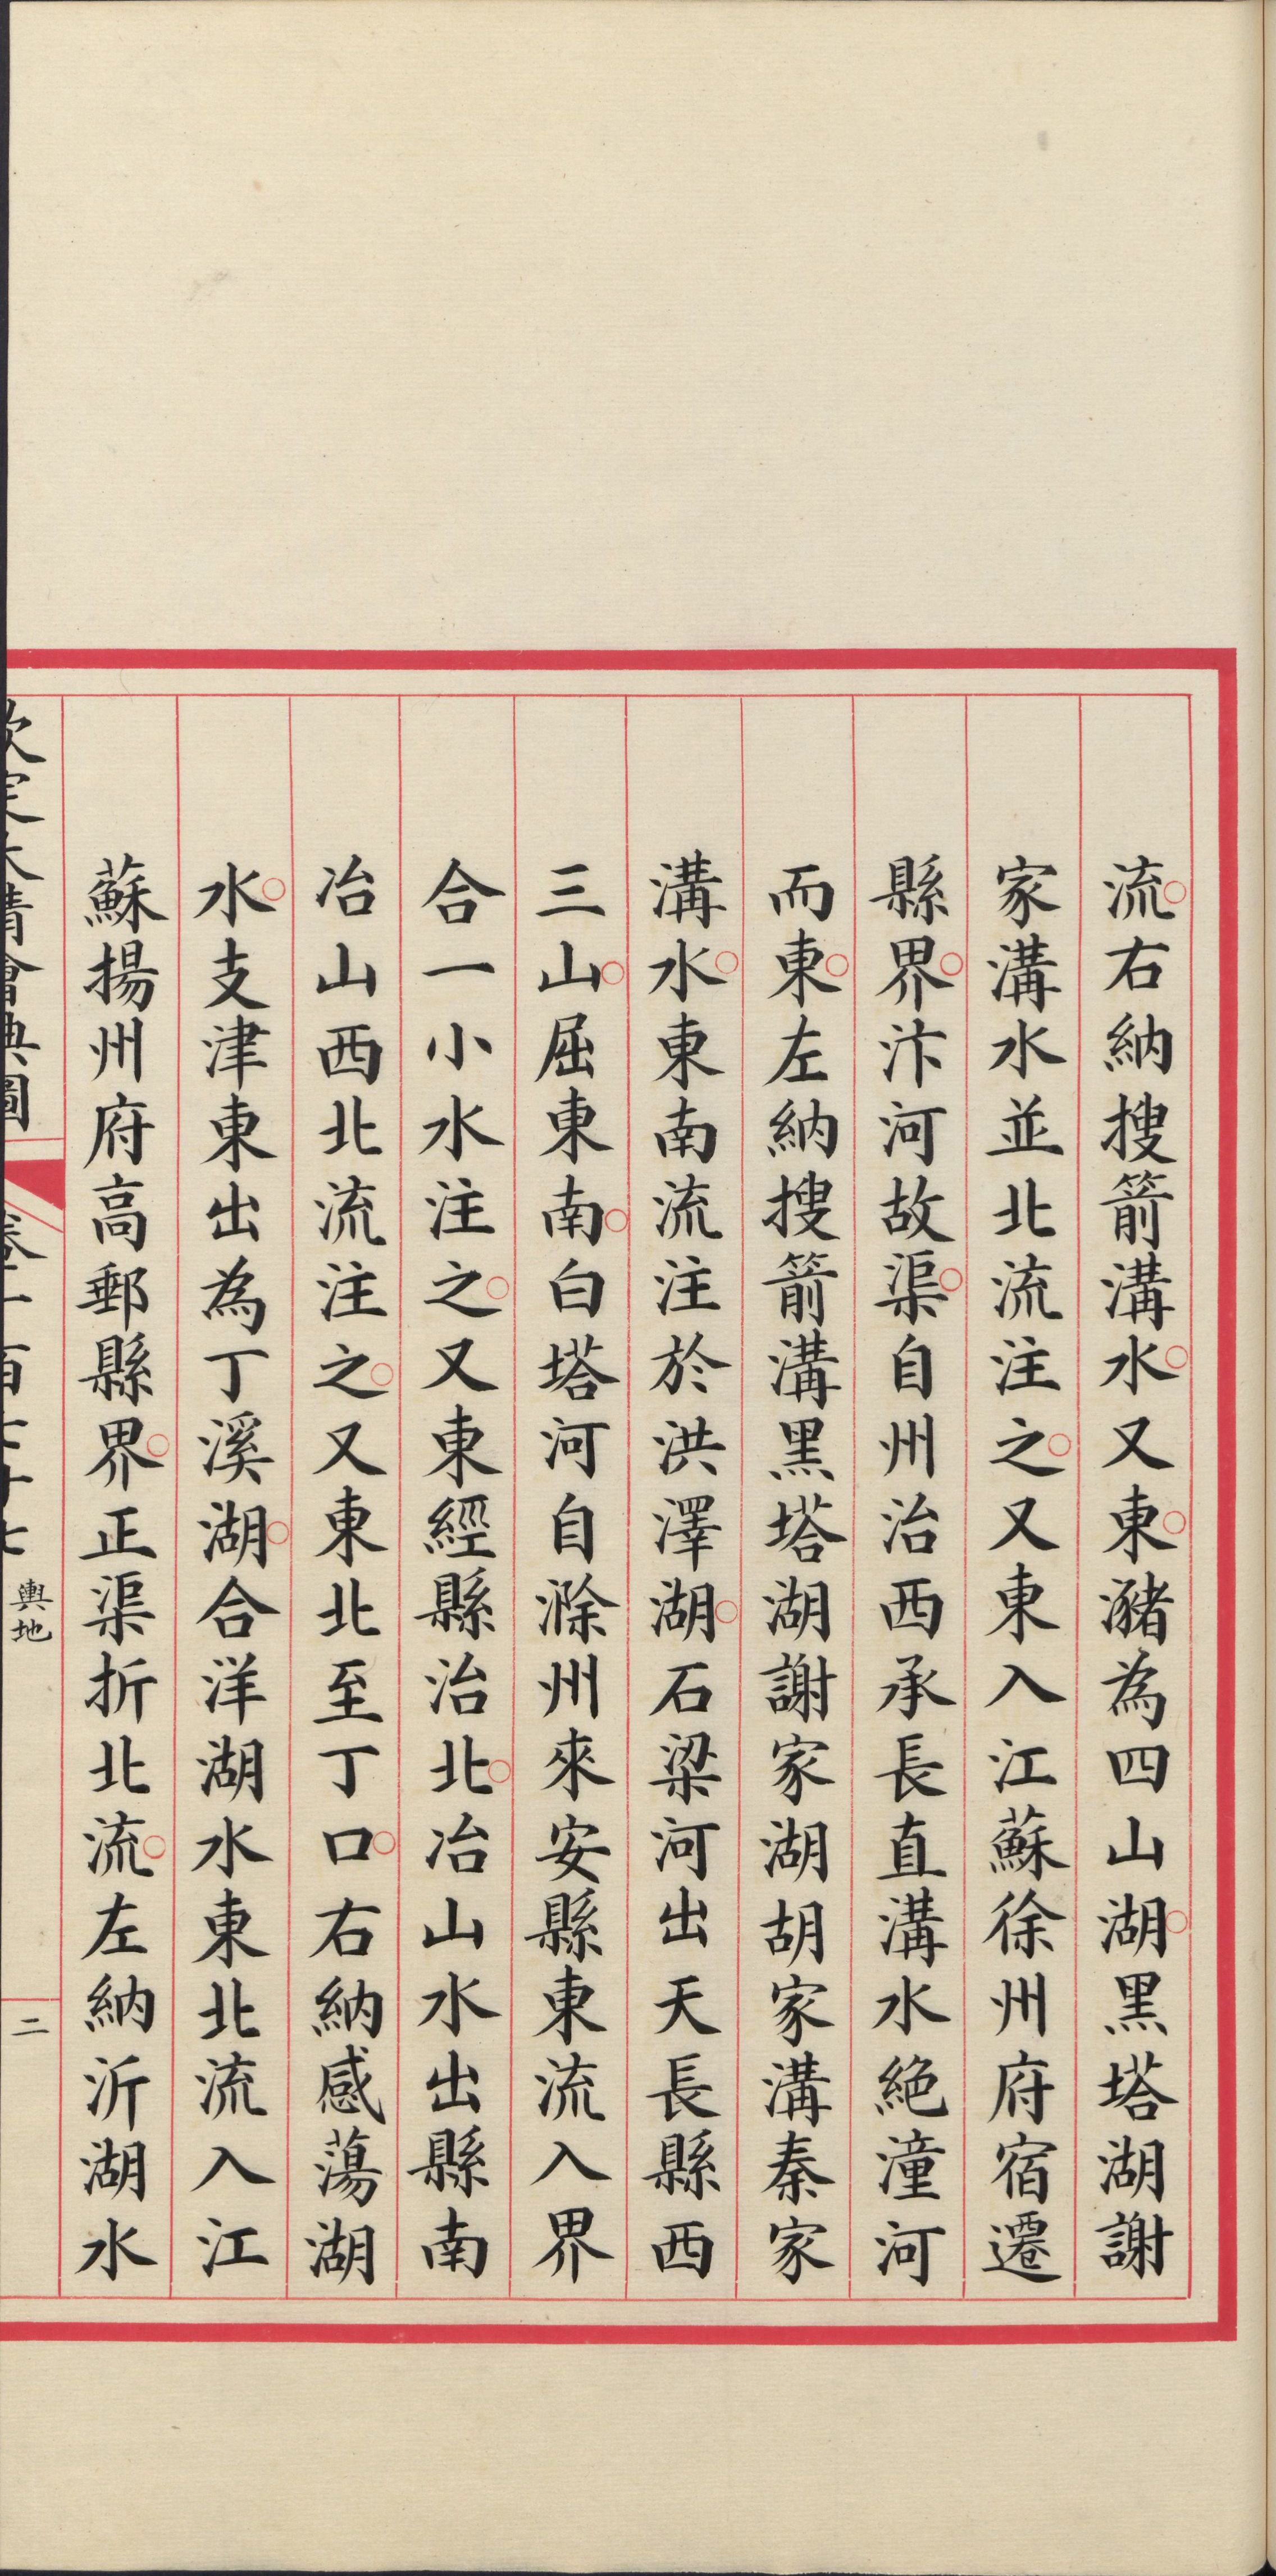 流右納搜箭溝水又東瀦為四山湖黑塔湖謝
家溝水並北流注之又東入江蘇徐州府宿遷
縣界汴河故渠自州治西承長直溝水絕潼河
而東左納搜箭溝黑塔湖謝家湖胡家溝秦家
溝水東南流注於洪澤湖石梁河出天長縣西
三山屈東南白塔河自滁州來安縣東流入界
合一小水注之又東經縣治北冶山水出縣南
冶山西北流注之又東北至丁口右納感蕩湖
水支津東出為丁溪湖合洋湖水東北流入江
蘇揚州府高郵縣界正渠折北流左納沂湖水
輿地
二